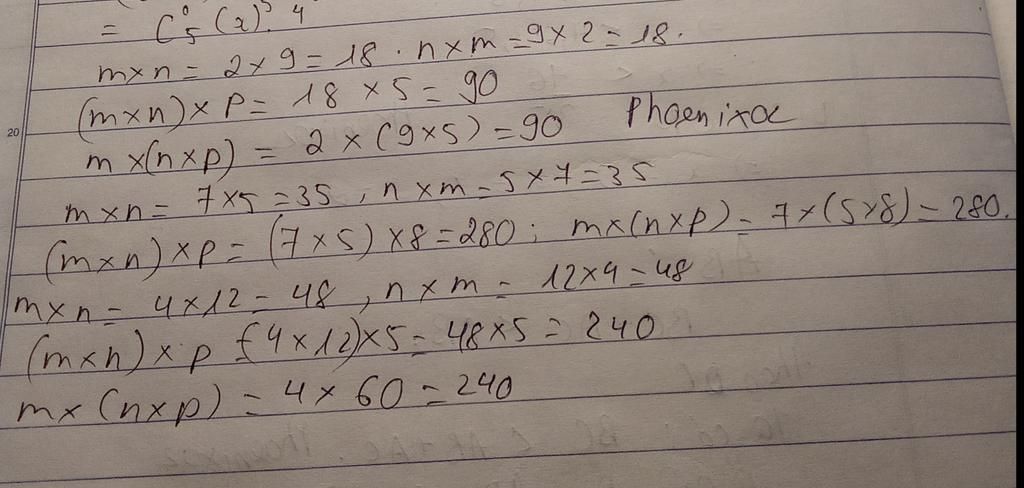 = C⁰₅ (x)⁵. 4
m×n = 2×9=18 . n×m=9×2=18.
(m×n)×P= 18 ×5= 90
20
m ×(n×p) = 2 ×(9×5)=90 Phoenixoc
m×n= 7×5=35, n×m=5×7=35
(m×n)×p= (7×5)×8=280; m×(n×p)= 7×(5×8)=280.
m×n= 4×12=48, n×m= 12×4=48
(m×n)×p =(4×12)×5=48×5=240
m×(n×p)=4×60=240